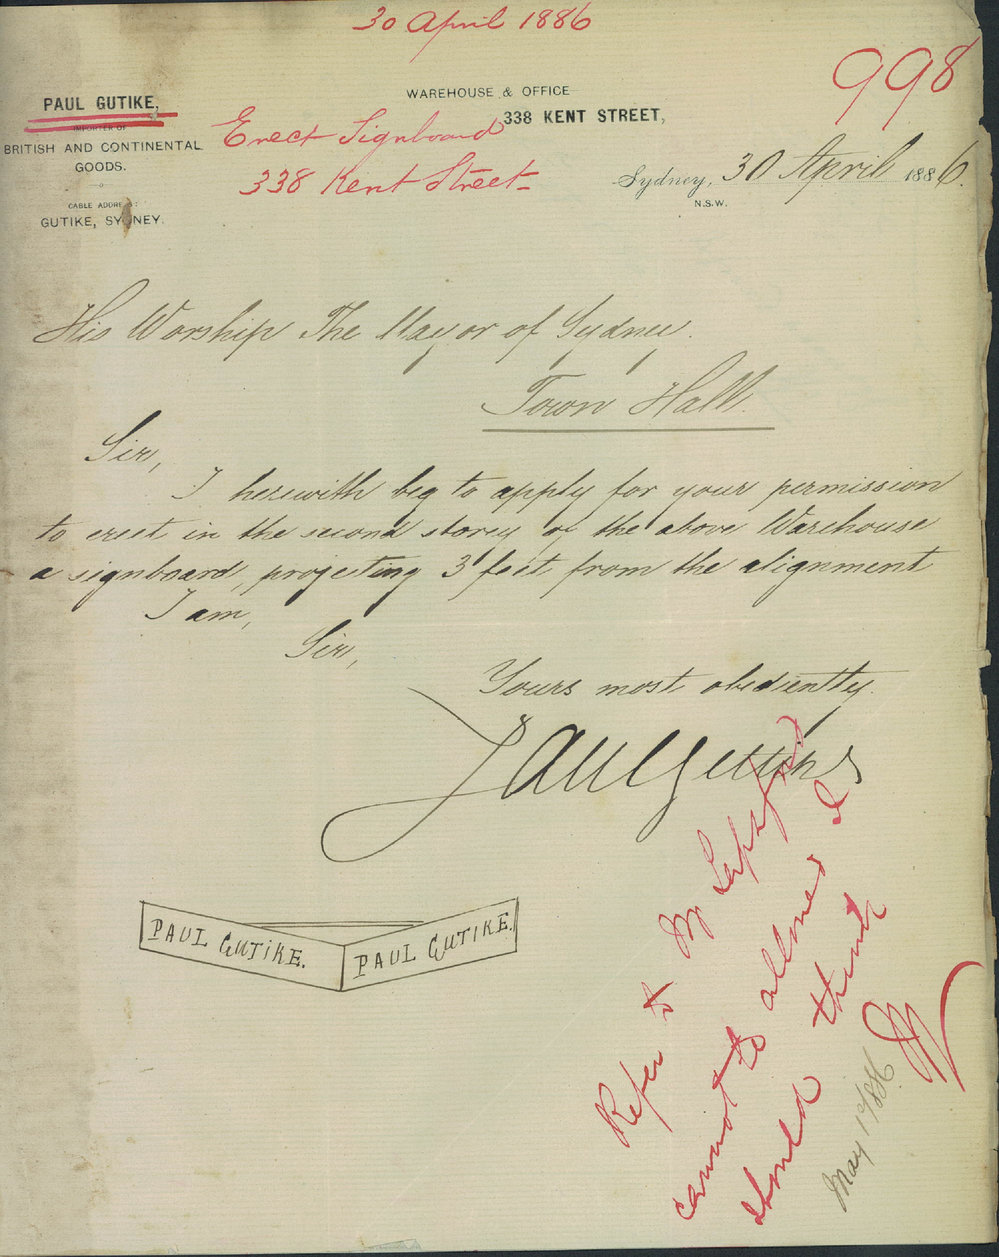 30 April 1886
998
PAUL GUTIKE,
IMPORTER OF
BRITISH AND CONTINENTAL
GOODS.
CABLE ADDRESS:
GUTIKE, SYDNEY.
WAREHOUSE & OFFICE
338 KENT STREET,
Erect Signboard
338 Kent Street
Sydney, 30 April 1886.
N.S.W.
His Worship The Mayor of Sydney.
Town Hall.
Sir,
I herewith beg to apply for your permission
to erect in the second storey of the above Warehouse
a signboard, projecting 3 feet from the alignment
I am,
Sir,
Yours most obediently.
Paul Gutike
PAUL GUTIKE.
PAUL GUTIKE.
Refer to Mr
cannot be allowed I
should think
May 1st/86.